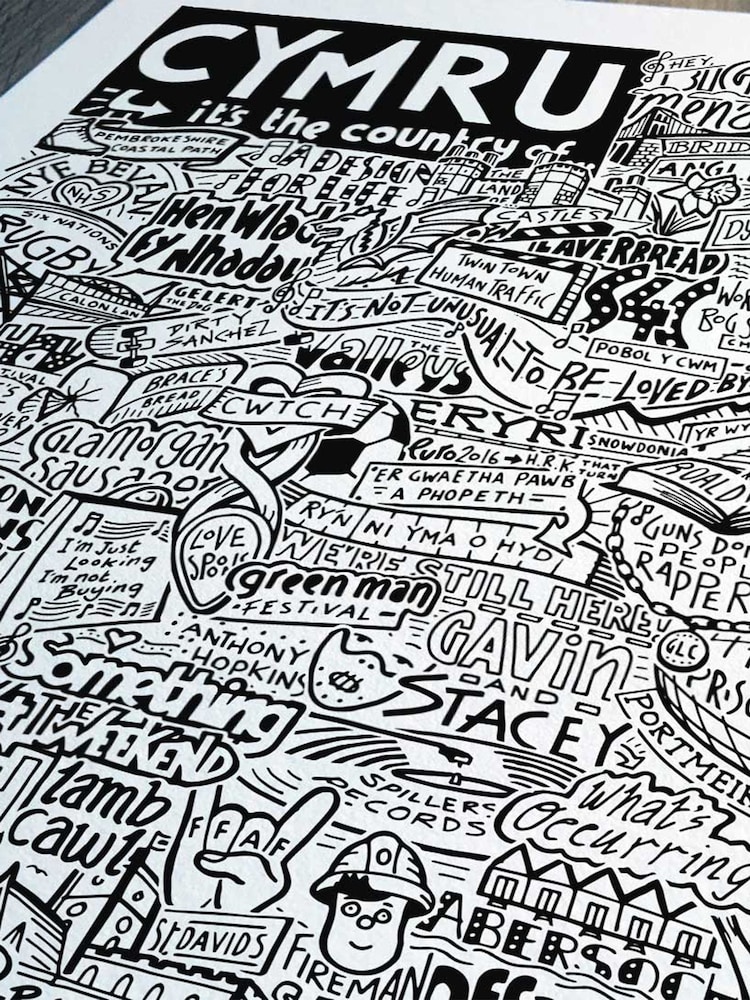 CYMRU
it's the country of...
HEY,
PEMBROKESHIRE
COASTAL PATH
NYE BEVAN
NHS
A DESIGN
FOR LIFE
THE
LAND
OF
CASTLES
BRID
ANGL
SIX NATIONS
RUGBY
Hen Wlad
Fy Nhadau
LAVERBREAD
TWIN TOWN
HUMAN TRAFFIC
S4C
CALON LAN
GELERT
THE DOG
DIRTY
SANCHEZ
IT'S NOT UNUSUAL TO BE LOVED BY
BOG
POBOL Y CWM
THE
Valleys
BRACE'S
BREAD
CWTCH
ERYRI
SNOWDONIA
YR WY
GLAMORGAN
Sausages
Euro 2016 → H.R.K. THAT
TURN
ER GWAETHA PAWB
A PHOPETH
ROALD
RY'N NI YMA O HYD
WE'RE STILL HERE
GUNS DON'T
PEOPLE
RAPPERS
GLC
I'm Just
Looking
I'm not
Buying
LOVE
SPOONS
green man
FESTIVAL
GAVIN
AND
STACEY
ANTHONY
HOPKINS
Something
4 THE
WEEKEND
PRIS
PORTMEIRION
SPILLERS
RECORDS
What's
Occurring
lamb
cawl
FFAF
St DAVIDS
FIREMAN
ABERSOCH